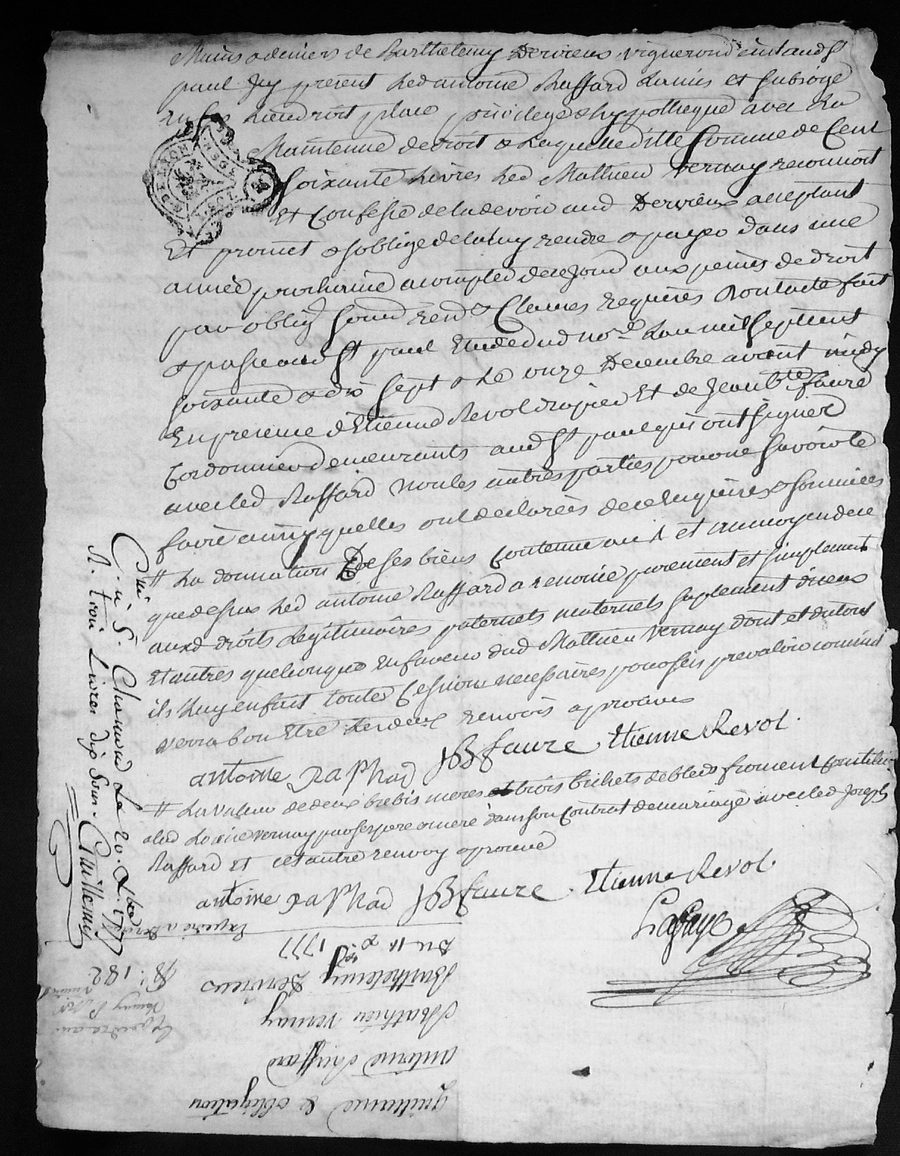 Mains & deniers de Barthelemy Dervieux vigneron dudit St
paul Icy présent led antoine Raffard la mis et subrogé
En son Lieu droit place privilege & hypotheque avec La
Maintenue de droit & Laquelle ditte Somme de Cent
Soixante Livres Led Mathieu Vernay reconnoit
Et Confesse de la devoir aud Dervieux acceptant
Et promet & soblige de la luy rendre & payer dans une
année prochaine a compter de ce jour aux peines de droit
par oblig Soum Ren & Clauses requises Dont acte fait
& passé aud St paul Etude dud no.re Lan mil Sept cent
soixante & dix sept & Le onze Decembre avant midy
En presence d'Etienne Revol drapier Et de Jean bte faure
Cordonnier demeurants aud St paul qui ont signé
avec led Raffard non les autres parties pour ne savoir le
faire ainsy quelles ont declarées de ce Enquises & sommées
# La donnation de ses biens Contenue et au moyen de ce
que dessus Led antoine Raffard a renoncé purement et simplement
aux d droits Legitimaires paternels maternels suplement diceux
Et autres quelconques En faveur dud Mathieu Vernay dont et du tout
ils luy en fait toutes Cessions necessaires pour sen prevaloir comme il
verra bon Etre. Les deux renvois aprouvés
antoine Raphad JBfaure Etienne Revol.
# La valeur de deux brebis meres et trois bichets de bled froment Constitués
a led Vernay par ses pere & mere dans son Contrat de mariage avec led Joseph
Raffard Et cet autre renvoy aprouvé
antoine Raphad JBfaure. Etienne Revol.
Lafaye
Côlé
à St Chamond Le 20. Xbre 1777
R. trois Livres dix Sous. Guillemin
quittance & obligation
antoine Raffard
Mathieu Vernay
Barthelemy Dervieux
Du 11 Xbre 1777
182